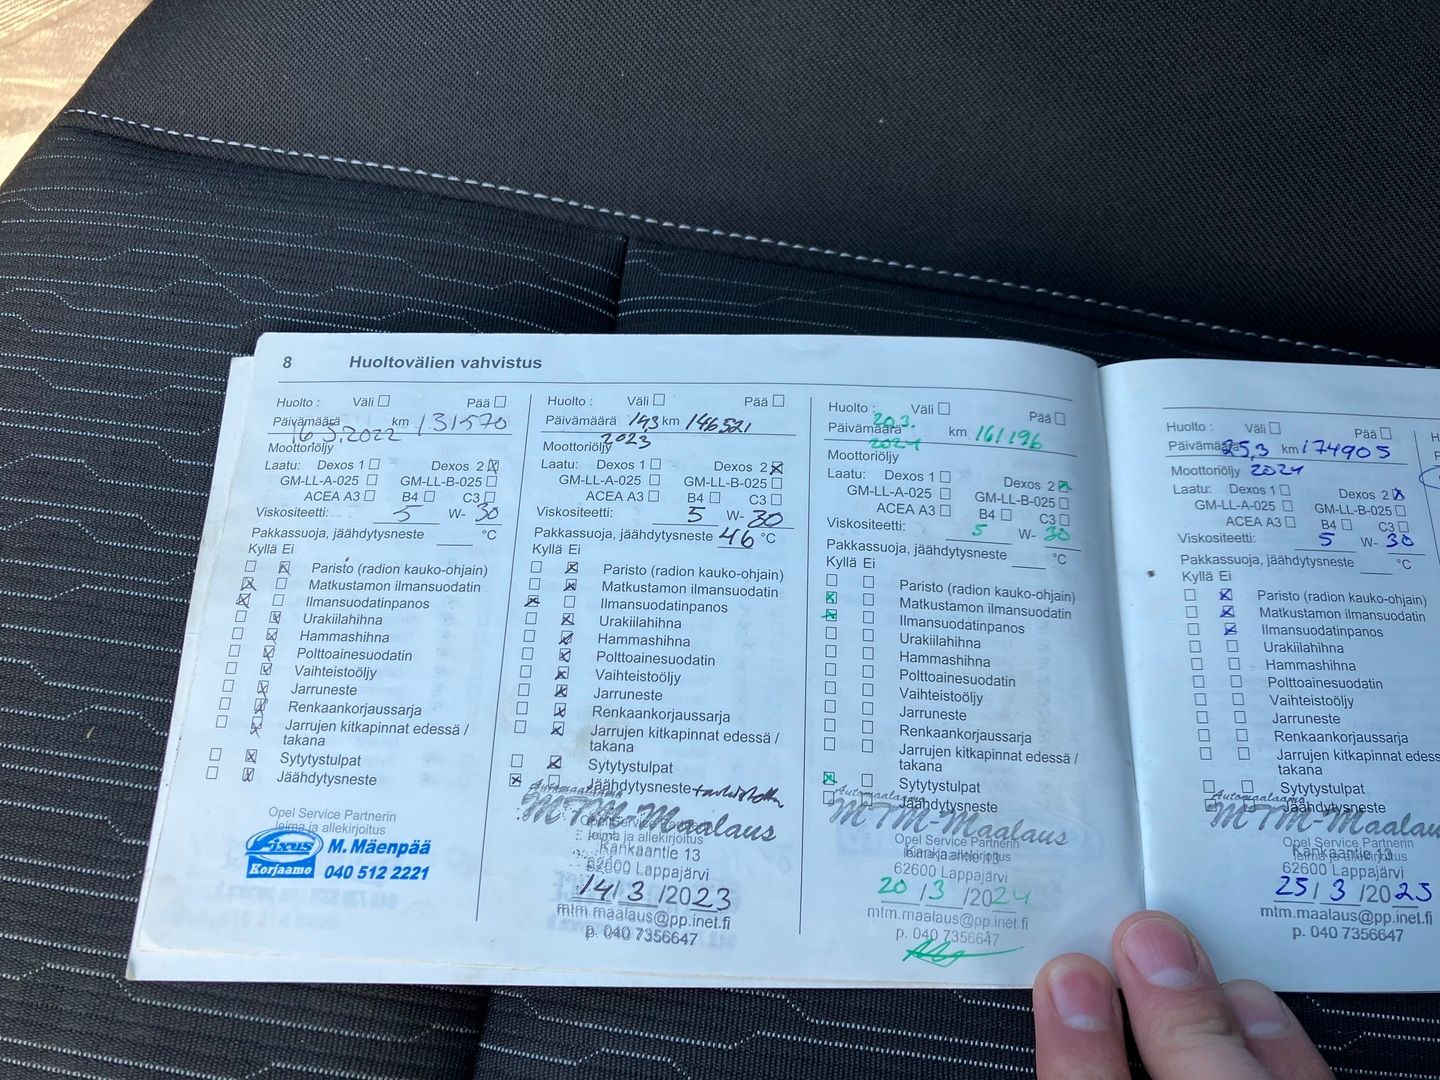 8 Huoltovälien vahvistus
Huolto : Väli Pää
Päivämäärä 16.3.2022 km 131570
Moottoriöljy
Laatu: Dexos 1 Dexos 2
GM-LL-A-025 GM-LL-B-025
ACEA A3 B4 C3
Viskositeetti: 5 W- 30
Pakkassuoja, jäähdytysneste °C
Kyllä Ei
Paristo (radion kauko-ohjain)
Matkustamon ilmansuodatin
Ilmansuodatinpanos
Urakiilahihna
Hammashihna
Polttoainesuodatin
Vaihteistoöljy
Jarruneste
Renkaankorjaussarja
Jarrujen kitkapinnat edessä /
takana
Sytytystulpat
Jäähdytysneste
Opel Service Partnerin
leima ja allekirjoitus
Fixus M. Mäenpää
Korjaamo 040 512 2221
Huolto : Väli Pää
Päivämäärä 14,3 km 146521
2023
Moottoriöljy
Laatu: Dexos 1 Dexos 2
GM-LL-A-025 GM-LL-B-025
ACEA A3 B4 C3
Viskositeetti: 5 W- 30
Pakkassuoja, jäähdytysneste 46 °C
Kyllä Ei
Paristo (radion kauko-ohjain)
Matkustamon ilmansuodatin
Ilmansuodatinpanos
Urakiilahihna
Hammashihna
Polttoainesuodatin
Vaihteistoöljy
Jarruneste
Renkaankorjaussarja
Jarrujen kitkapinnat edessä /
takana
Sytytystulpat
Jäähdytysneste
Automaalaamo
MTM-Maalaus
leima ja allekirjoitus
Kankaantie 13
62600 Lappajärvi
14/3/2023
mtm.maalaus@pp.inet.fi
p. 040 7356647
Huolto : Väli Pää
20.3.
Päivämäärä km 161196
2024
Moottoriöljy
Laatu: Dexos 1 Dexos 2
GM-LL-A-025 GM-LL-B-025
ACEA A3 B4 C3
Viskositeetti: 5 W- 30
Pakkassuoja, jäähdytysneste °C
Kyllä Ei
Paristo (radion kauko-ohjain)
Matkustamon ilmansuodatin
Ilmansuodatinpanos
Urakiilahihna
Hammashihna
Polttoainesuodatin
Vaihteistoöljy
Jarruneste
Renkaankorjaussarja
Jarrujen kitkapinnat edessä /
takana
Sytytystulpat
Jäähdytysneste
Automaalaamo
MTM-Maalaus
Opel Service Partnerin
leima ja allekirjoitus
Kankaantie 13
62600 Lappajärvi
20/3/2024
mtm.maalaus@pp.inet.fi
p. 040 7356647
Huolto : Väli Pää
Päivämäärä 25,3 km 174905
Moottoriöljy 2024
Laatu: Dexos 1 Dexos 2
GM-LL-A-025 GM-LL-B-025
ACEA A3 B4 C3
Viskositeetti: 5 W- 30
Pakkassuoja, jäähdytysneste °C
Kyllä Ei
Paristo (radion kauko-ohjain)
Matkustamon ilmansuodatin
Ilmansuodatinpanos
Urakiilahihna
Hammashihna
Polttoainesuodatin
Vaihteistoöljy
Jarruneste
Renkaankorjaussarja
Jarrujen kitkapinnat edessä /
takana
Sytytystulpat
Jäähdytysneste
Automaalaamo
MTM-Maalaus
Opel Service Partnerin
leima ja allekirjoitus
Kankaantie 13
62600 Lappajärvi
25/3/2025
mtm.maalaus@pp.inet.fi
p. 040 7356647